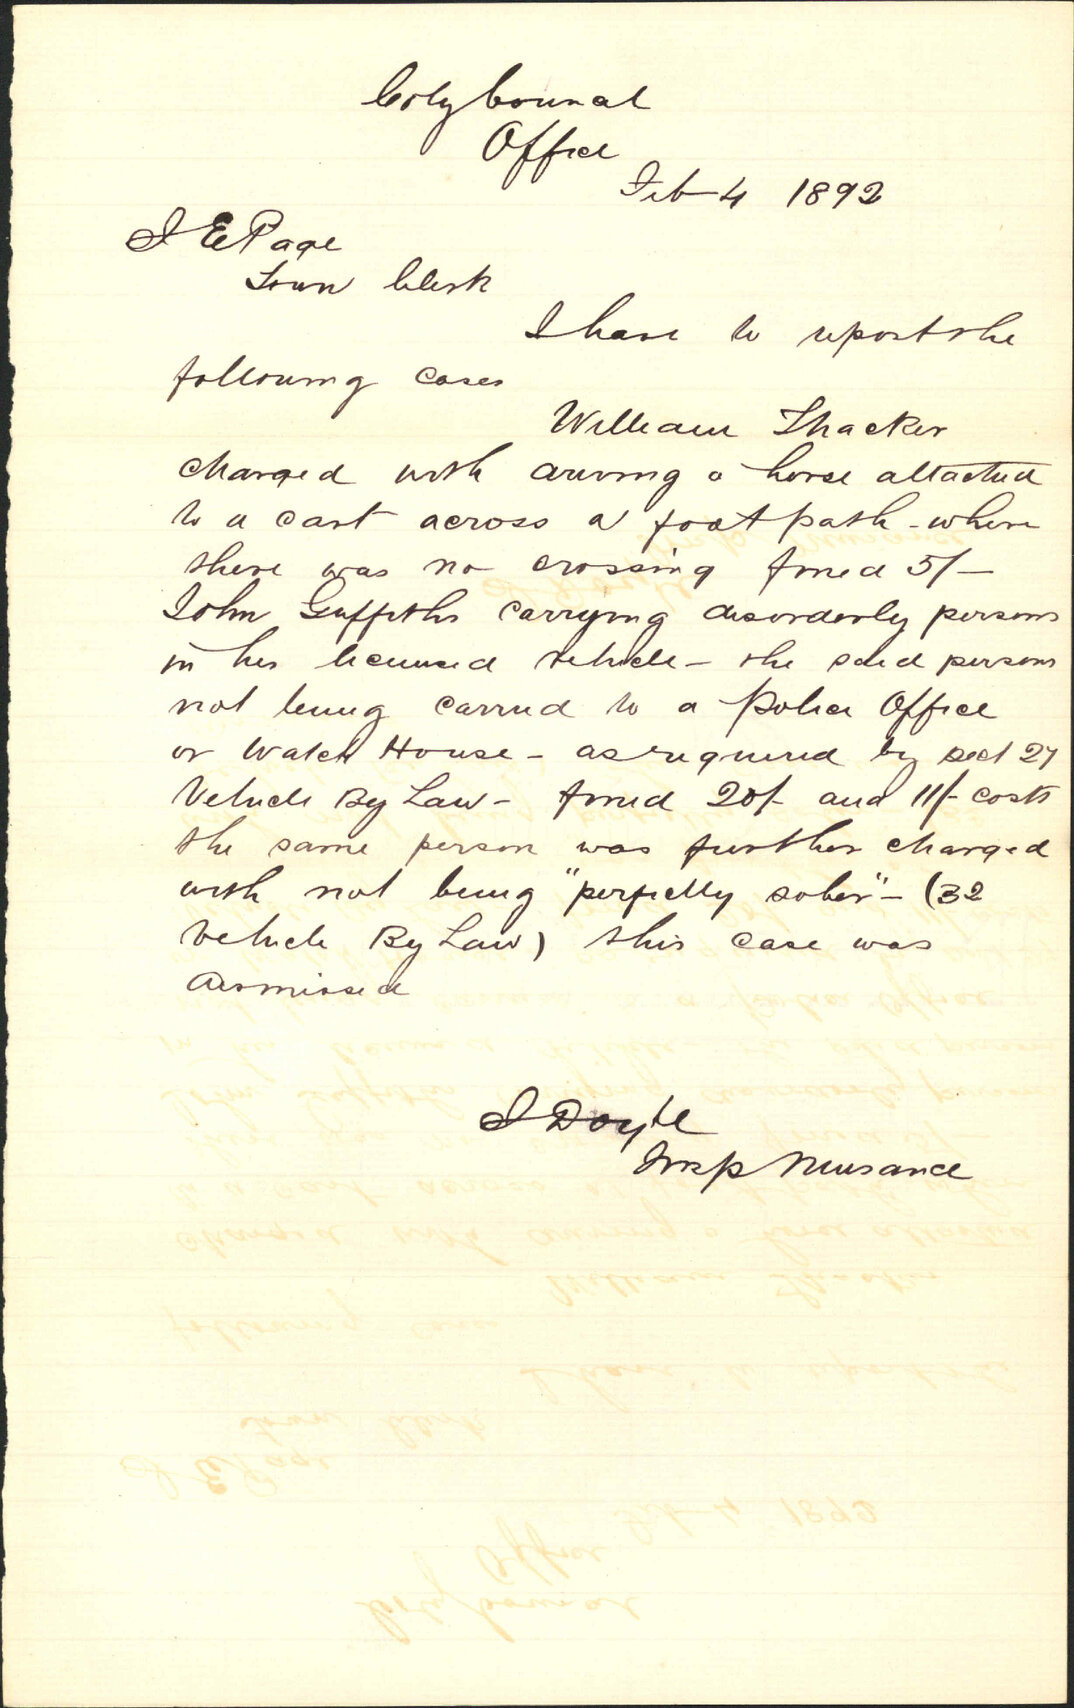 City Council
Office
Feb 4 1892
J E Page
Town Clerk
I have to report the
following cases
William Thacker
charged with driving a horse attached
to a cart across a footpath - where
there was no crossing fined 5/-
John Griffiths carrying disorderly persons
in his licensed vehicle - the said persons
not being carried to a Police Office
or Watch House - as required by sect 27
Vehicle By Law - fined 20/- and 11/- costs
the same person was further charged
with not being "perfectly sober" - (32
Vehicle By Law) this case was
dismissed
J Doyle
Insp Nuisance